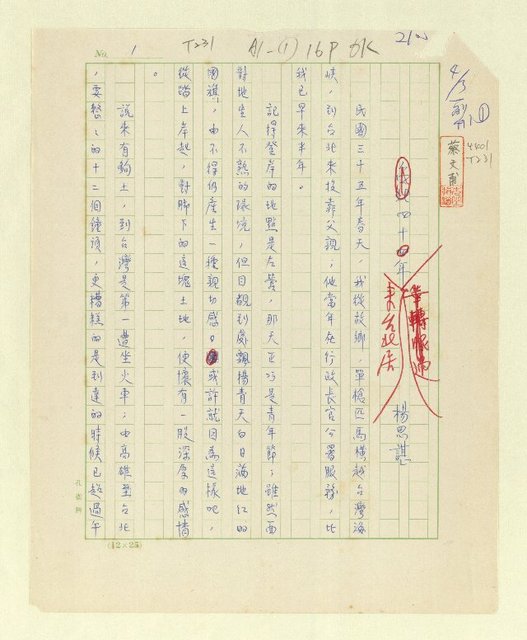 No. 1
T231
A1-(1) 16P OK
2100
4/3
蔡文甫
4401
T231
四十年
筆轉帳過
東台北居
楊思諶
民國三十五年春天,我從故鄉,單槍匹馬橫越台灣海
峽,到台北來投靠父親;他當年在行政長官公署服務,比
我已早來半年。
記得登岸的地點是左營,那天正巧是青年節;雖然面
對地生人不熟的環境,但目睹到處飄揚青天白日滿地紅的
國旗,由不得仍產生一種親切感。或許就因為這樣吧,
從踏上岸起,對腳下的這塊土地,便懷有一股深摯的感情
。
說來有夠土,到台灣是第一遭坐火車;由高雄至台北
,要整整的十二個鐘頭,更糟糕的是到達的時候已超過午
孔雀牌
(12×25)